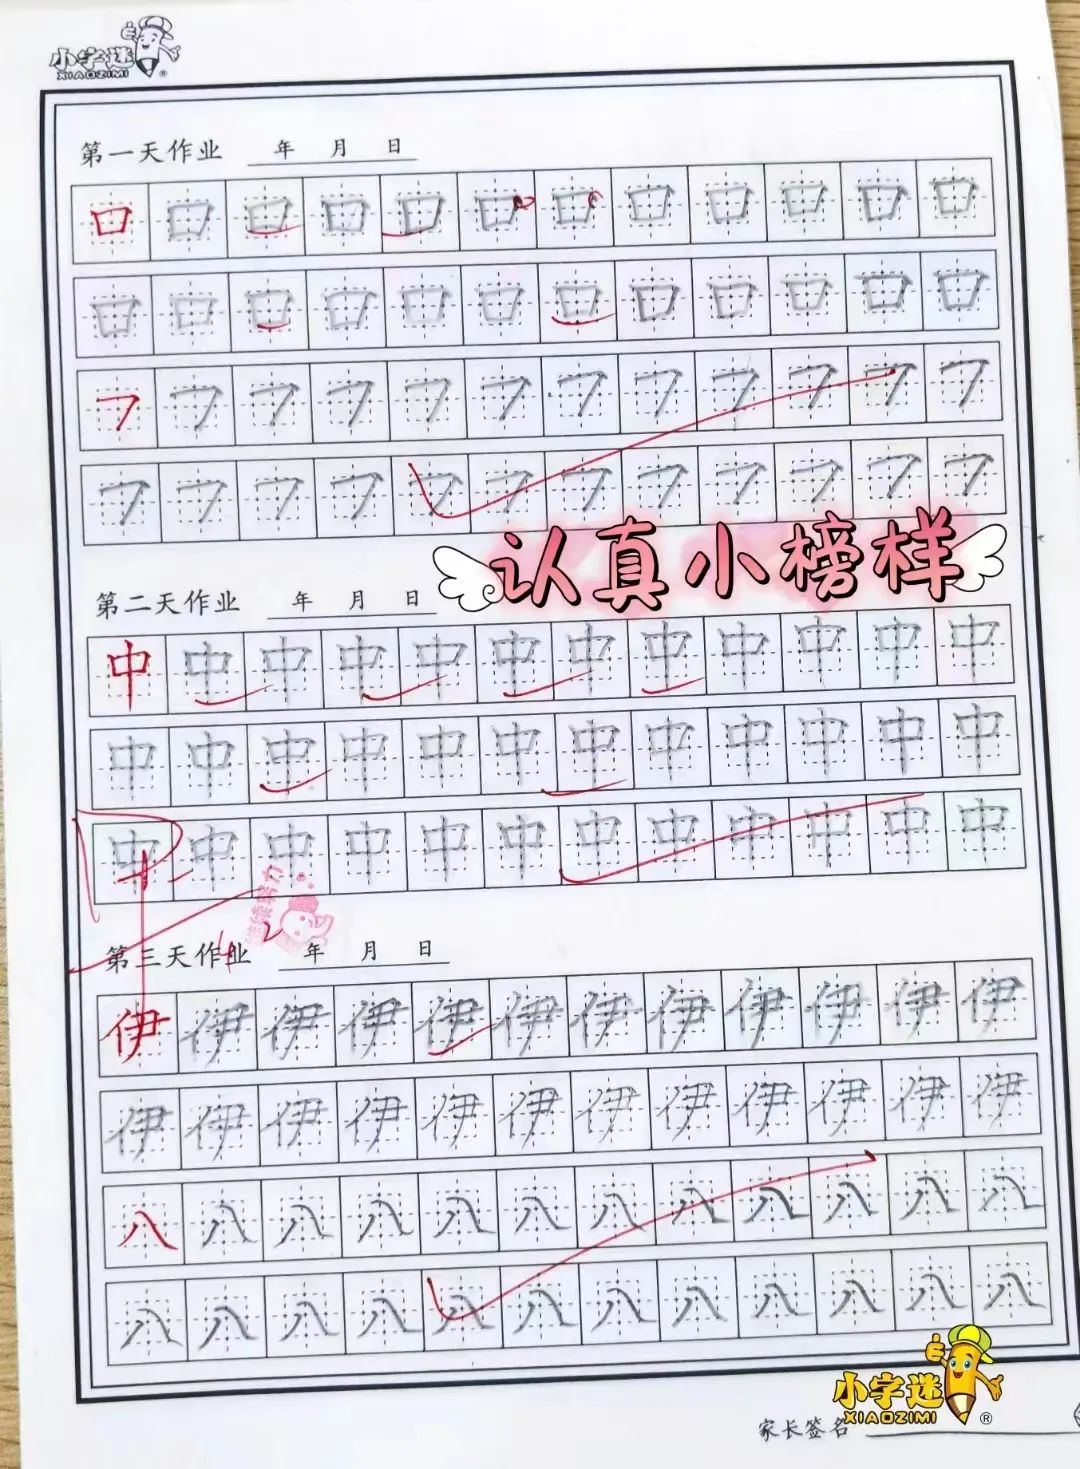 小字迷
XIAOZIMI®
第一天作业 年 月 日
口 口 口 口 口 口 口 口 口 口 口 口
口 口 口 口 口 口 口 口 口 口 口 口
㇇ ㇇ ㇇ ㇇ ㇇ ㇇ ㇇ ㇇ ㇇ ㇇ ㇇ ㇇
㇇ ㇇ ㇇ ㇇ ㇇ ㇇ ㇇ ㇇ ㇇ ㇇ ㇇ ㇇
认真小榜样
第二天作业 年 月 日
中 中 中 中 中 中 中 中 中 中 中 中
中 中 中 中 中 中 中 中 中 中 中 中
中 中 中 中 中 中 中 中 中 中 中 中
继续努力
第三天作业 年 月 日
伊 伊 伊 伊 伊 伊 伊 伊 伊 伊 伊 伊
伊 伊 伊 伊 伊 伊 伊 伊 伊 伊 伊 伊
八 八 八 八 八 八 八 八 八 八 八 八
八 八 八 八 八 八 八 八 八 八 八 八
小字迷
XIAOZIMI®
家长签名